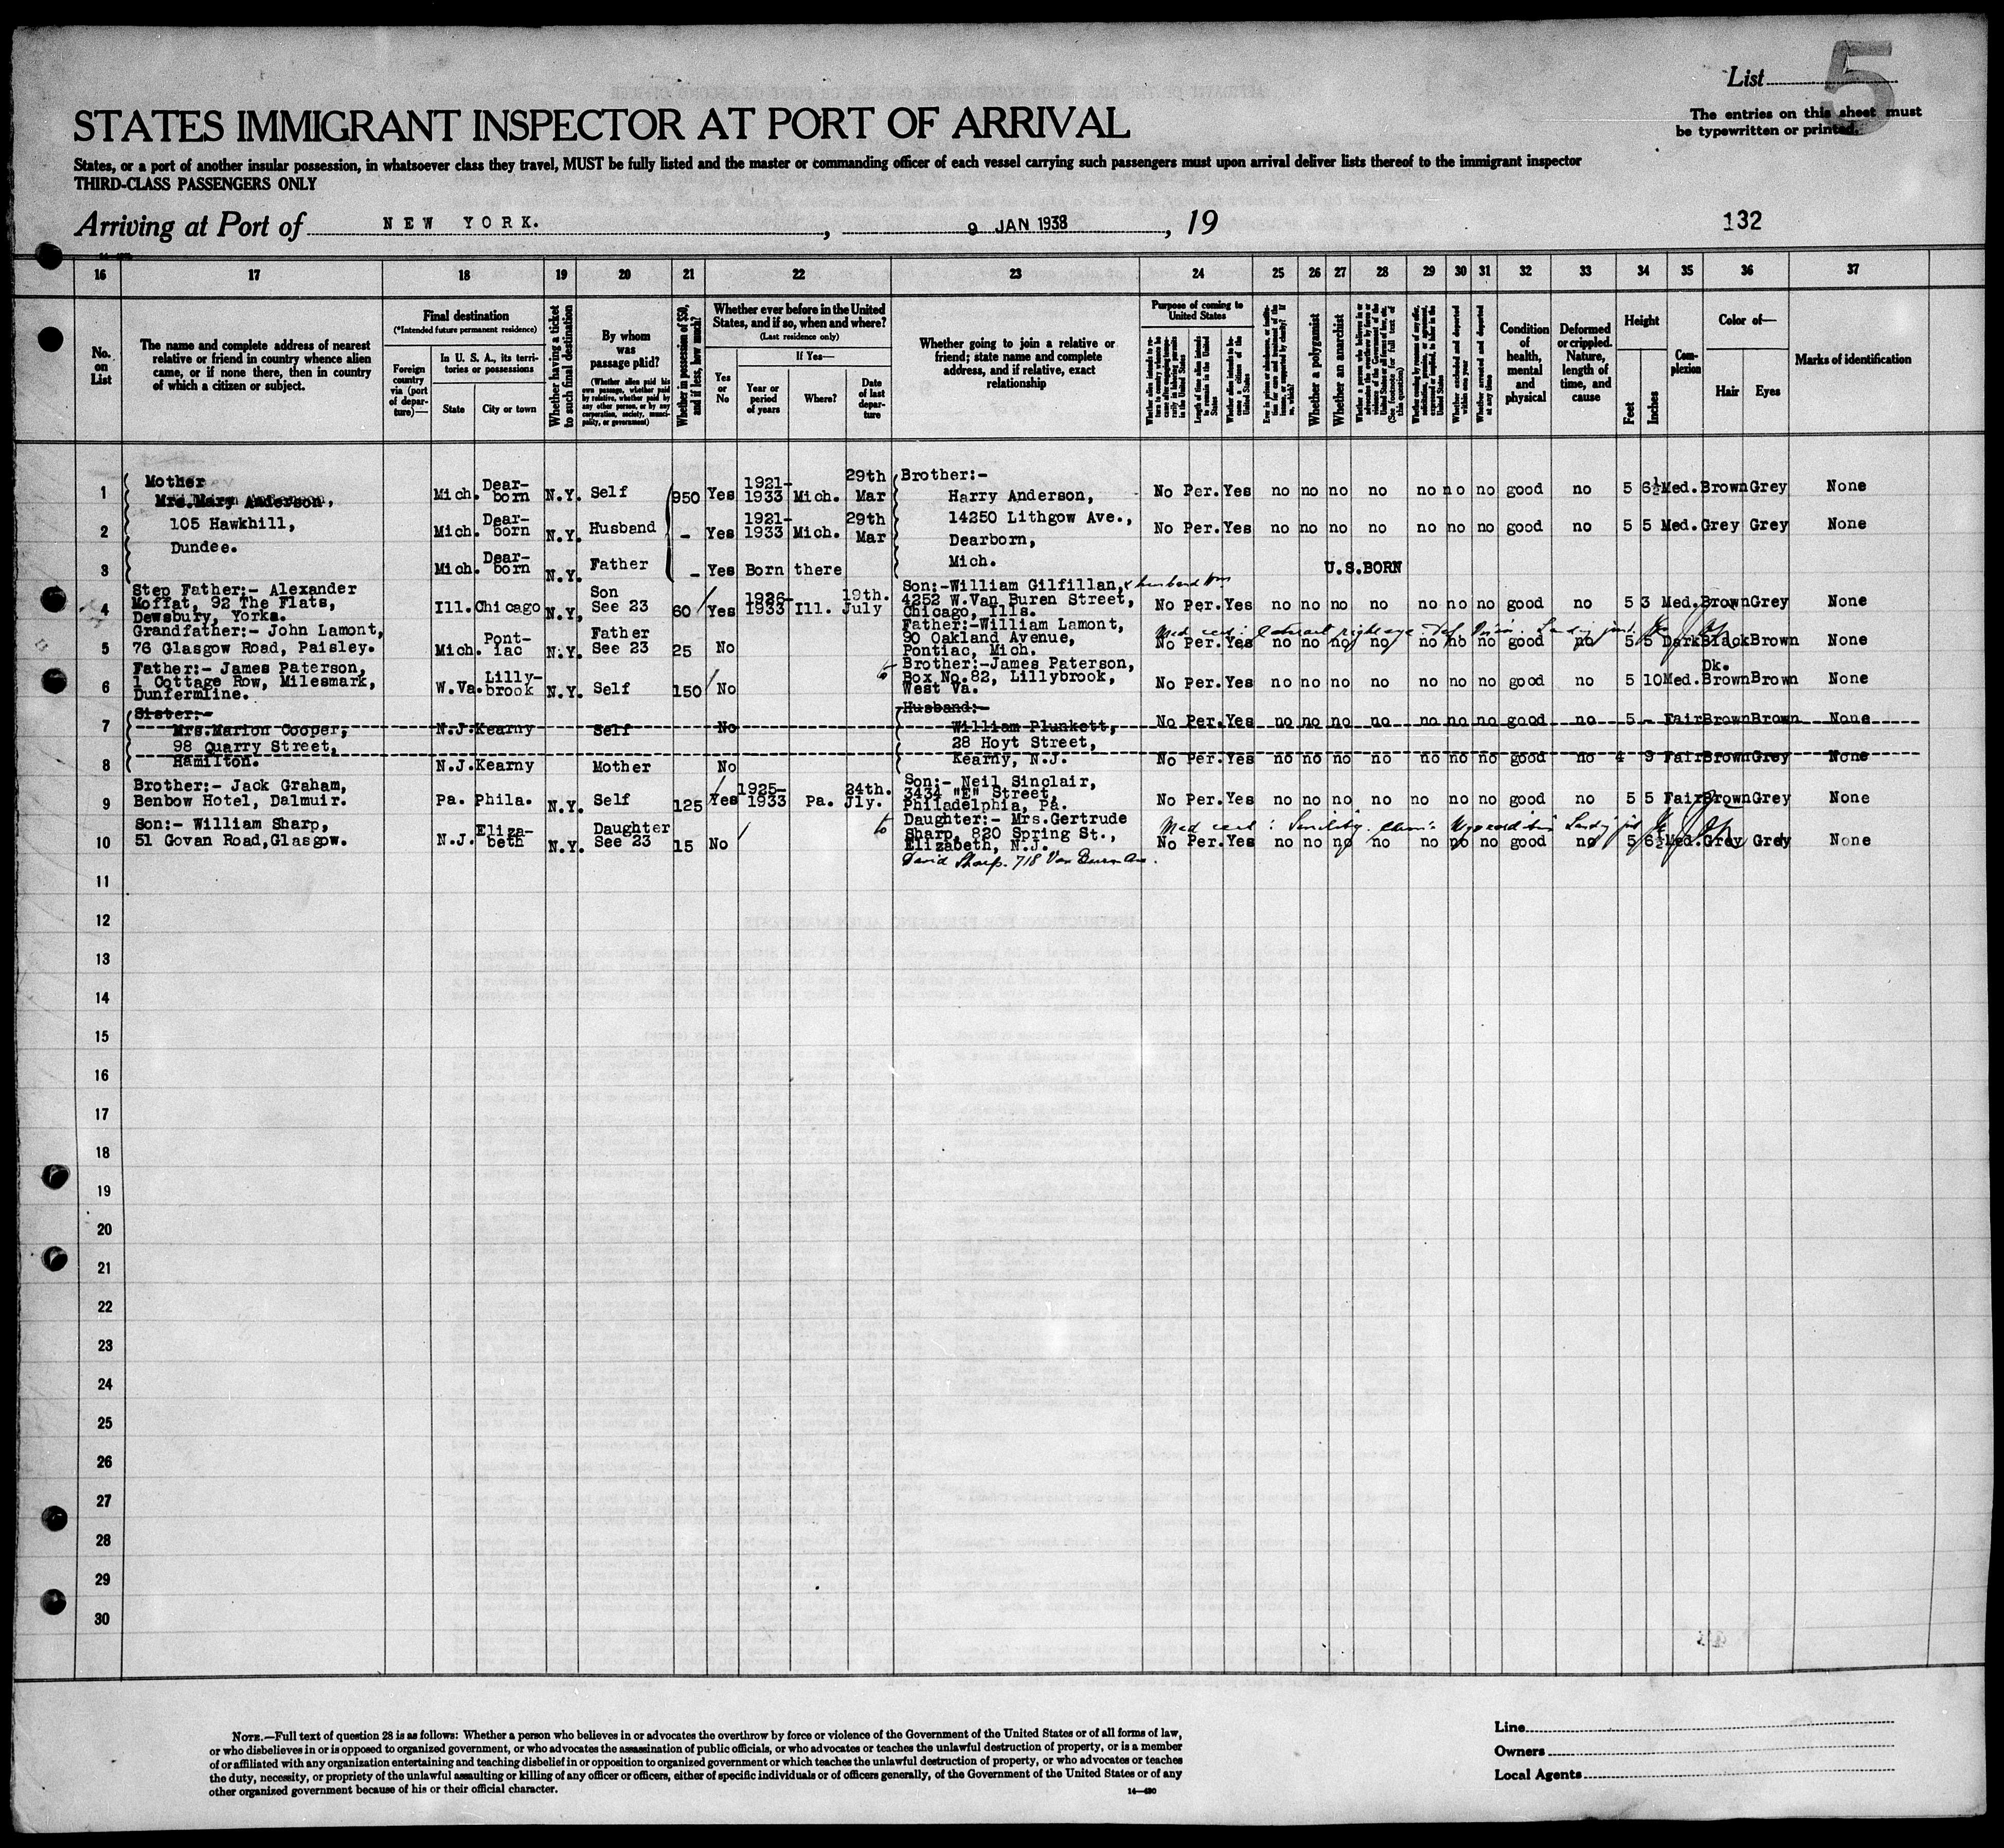 List 5
The entries on this sheet must
be typewritten or printed.
STATES IMMIGRANT INSPECTOR AT PORT OF ARRIVAL
States, or a port of another insular possession, in whatsoever class they travel, MUST be fully listed and the master or commanding officer of each vessel carrying such passengers must upon arrival deliver lists thereof to the immigrant inspector
THIRD-CLASS PASSENGERS ONLY
Arriving at Port of NEW YORK. , 9 JAN 1938 , 19 132
16 17 18 19 20 21 22 23 24 25 26 27 28 29 30 31 32 33 34 35 36 37
No. on List
The name and complete address of nearest relative or friend in country whence alien came, or if none there, then in country of which a citizen or subject.
Final destination
(*Intended future permanent residence)
Foreign country via (port of departure)—
In U. S. A., its territories or possessions
State City or town
Whether having a ticket to such final destination
By whom was passage paid?
(Whether alien paid his own passage, whether paid by relative, whether paid by any other person, or by any corporation, society, municipality, or government)
Whether in possession of $50, and if less, how much?
Whether ever before in the United States, and if so, when and where?
(Last residence only)
Yes or No
If Yes—
Year or period of years
Where?
Date of last departure
Whether going to join a relative or friend; state name and complete address, and if relative, exact relationship
Purpose of coming to United States
Whether a polygamist
Whether an anarchist
Condition of health, mental and physical
Deformed or crippled. Nature, length of time, and cause
Height
Feet Inches
Complexion
Color of—
Hair Eyes
Marks of identification
1 Mother Mrs. Mary Anderson, Mich. Dearborn N.Y. Self 950 Yes 1921-1933 Mich. 29th Mar Brother:- Harry Anderson, No Per. Yes no no no no no no no good no 5 6½ Med. Brown Grey None
2 105 Hawkhill, Dundee. Mich. Dearborn N.Y. Husbend - Yes 1921-1933 Mich. 29th Mar 14250 Lithgow Ave., Dearborn, No Per. Yes no no no no no no no good no 5 5 Med. Grey Grey None
3 Mich. Dearborn N.Y. Father - Yes Born there Mich. U.S.BORN
4 Step Father:- Alexander Moffat, 92 The Flats, Dewsbury, Yorks. Ill. Chicago N.Y. Son See 23 60 Yes 1926-1933 Ill. 19th. July Son:-William Gilfillan, & husband Wm 4252 W.Van Buren Street, Chicago, Ills. No Per. Yes no no no no no no no good no 5 3 Med. Brown Grey None
5 Grandfather:- John Lamont, 76 Glasgow Road, Paisley. Mich. Pontiac N.Y. Father See 23 25 No Father:-William Lamont, 90 Oakland Avenue, Pontiac, Mich. No Per. Yes no no no no no no no good no 5 5 Dark Black Brown None
Med cert: Cataract right eye
6 Father:- James Paterson, 1 Cottage Row, Milesmark, Dunfermline. W.Va. Lillybrook N.Y. Self 150 No to Brother:-James Paterson, Box No.82, Lillybrook, West Va. No Per. Yes no no no no no no no good no 5 10 Med. Dk. Brown Brown None
7 Sister:- Mrs.Marion Cooper, N.J. Kearny Self No Husband:- William Plunkett, No Per. Yes no no no no no no no good no 5 - Fair Brown Brown None
8 98 Quarry Street, Hamilton. N.J. Kearny Mother No 28 Hoyt Street, Kearny, N.J. No Per. Yes no no no no no no no good no 4 9 Fair Brown Grey None
9 Brother:- Jack Graham, Benbow Hotel, Dalmuir. Pa. Phila. N.Y. Self 125 Yes 1925-1933 Pa. 24th. Jly. Son:- Neil Sinclair, 3434 "E" Street, Philadelphia, Pa. No Per. Yes no no no no no no no good no 5 5 Fair Brown Grey None
10 Son:- William Sharp, 51 Govan Road,Glasgow. N.J. Elizabeth N.Y. Daughter See 23 15 No to Daughter:- Mrs.Gertrude Sharp, 820 Spring St., Elizabeth, N.J. No Per. Yes no no no no no no no good no 5 6½ Med. Grey Grey None
Med cert: Senility.
David Sharp. 718 Van Buren Ave.
11
12
13
14
15
16
17
18
19
20
21
22
23
24
25
26
27
28
29
30
NOTE.—Full text of question 28 is as follows: Whether a person who believes in or advocates the overthrow by force or violence of the Government of the United States or of all forms of law,
or who disbelieves in or is opposed to organized government, or who advocates the assassination of public officials, or who advocates or teaches the unlawful destruction of property, or is a member
of or affiliated with any organization entertaining and teaching disbelief in or opposition to organized government or which teaches the unlawful destruction of property, or who advocates or teaches
the duty, necessity, or propriety of the unlawful assaulting or killing of any officer or officers, either of specific individuals or of officers generally, of the Government of the United States or of any
other organized government because of his or their official character.
14—430
Line
Owners
Local Agents